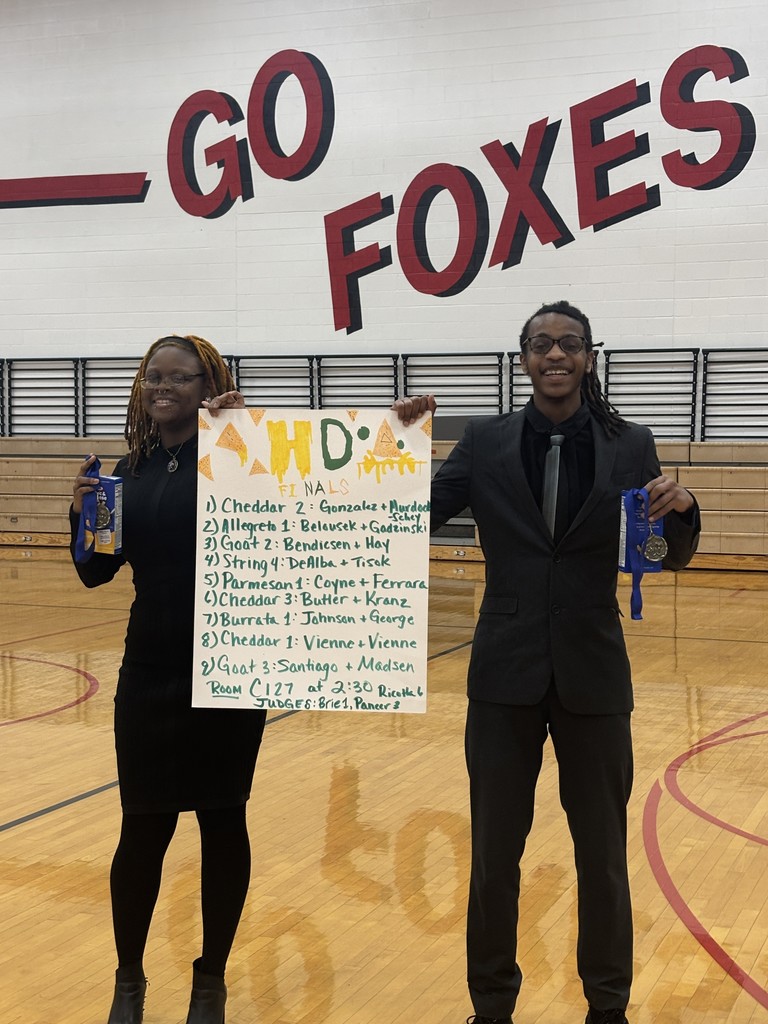 GO
FOXES
HDA
FINALS
1) Cheddar 2: Gonzalez + Murdock
-Schey
2) Allegreto 1: Belousek + Gadzinski
3) Goat 2: Bendicsen + Hay
4) String 4: DeAlba + Tisok
5) Parmesan 1: Coyne + Ferrara
6) Cheddar 3: Butler + Kranz
7) Burrata 1: Johnson + George
8) Cheddar 1: Vienne + Vienne
9) Goat 3: Santiago + Madsen
ROOM C127 at 2:30 Ricotta 6
JUDGES: Brie 1, Paneer 3